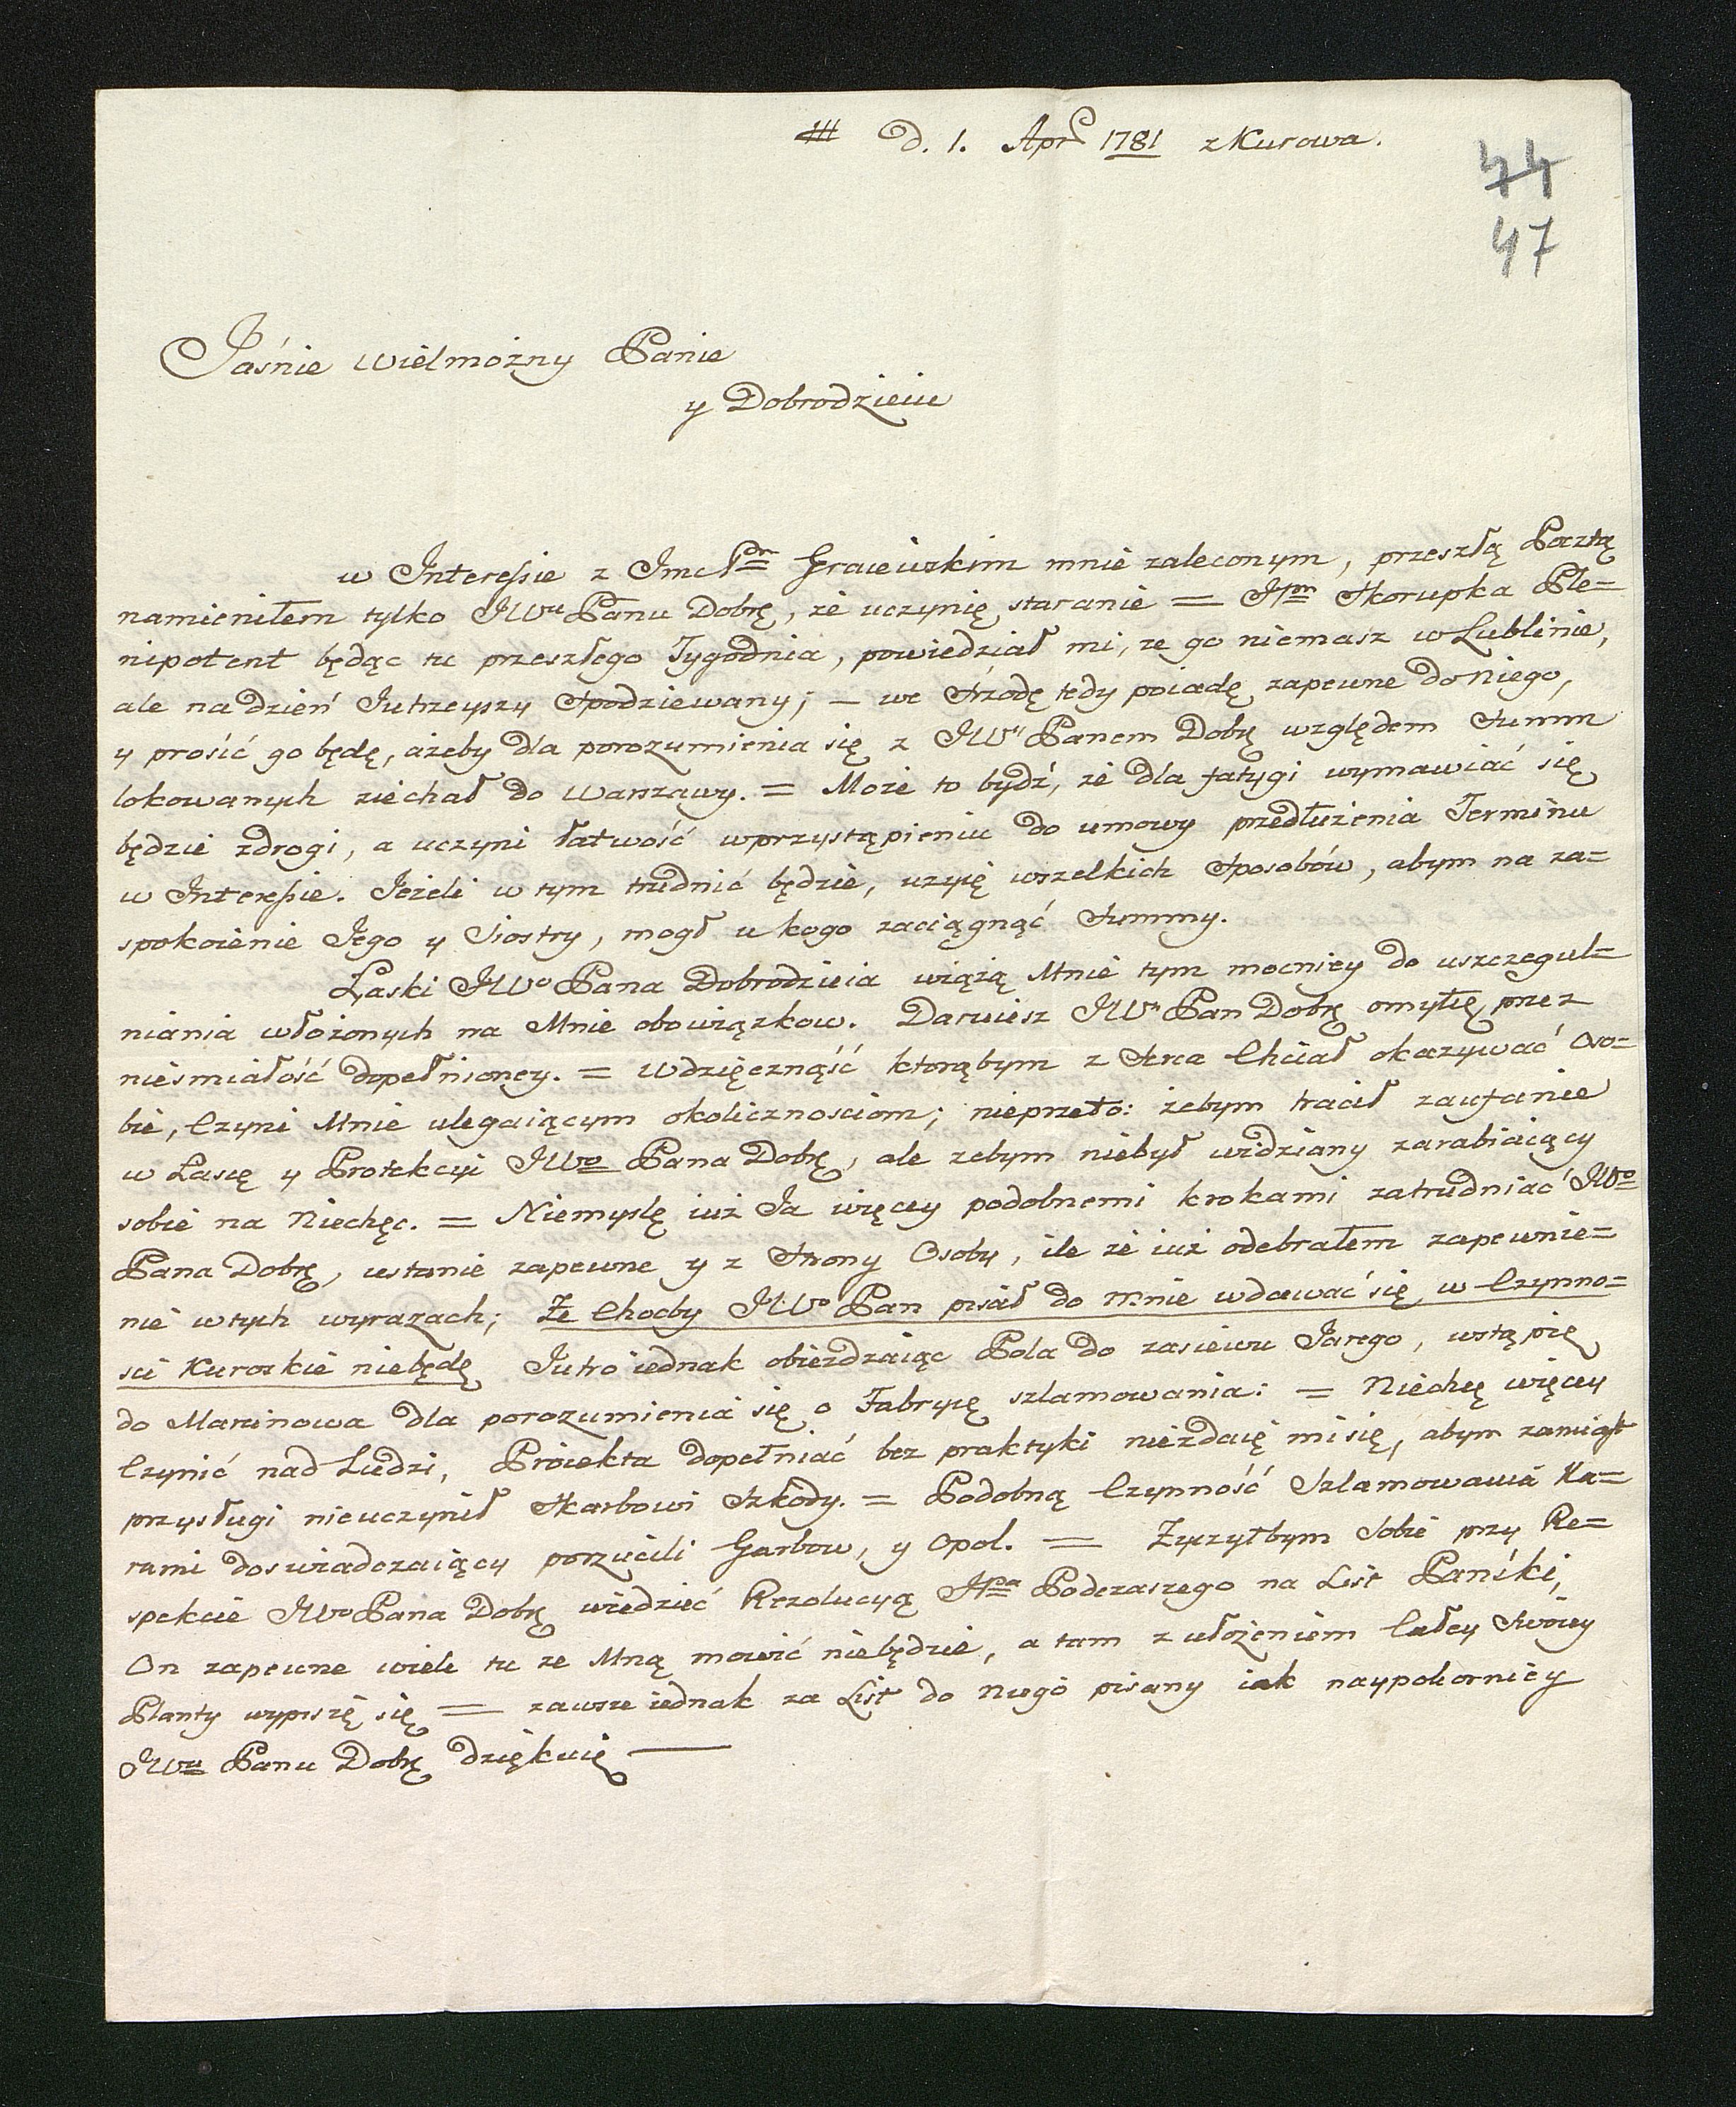 D. 1. Apr 1781 z Kurowa.
44
47
Jaśnie Wielmożny Panie
y Dobrodzieiu
w Interessie z Imc Graiewskim mnie zaleconym, przeszłą Pocztą
namieniłem tylko JWu Panu Dobę, że uczynię staranie = Skorupka Ple=
nipotent będąc tu przeszłego Tygodnia, powiedział mi, że go niemasz w Lublinie,
ale na dzień Jutrzyszy Spodziewany; – we Srzodę tedy poiadę zapewne do niego,
y prosić go będę, ażeby dla porozumienia się z JW Panem Dobę względem Summ
lokowanych ziechał do Warszawy. = Może to bydź, że dla fatygi wymawiać się
będzie z drogi, a uczyni łatwość w przystąpieniu do umowy przedłużenia Terminu
w Interessie. Jeżeli w tym trudnić będzie, użyię wszelkich Sposobów, abym na za=
spokoienie Jego y Siostry, mogł u kogo zaciągnąć Summy.
Łaski JWo Pana Dobrodzieia wiążą Mnie tym mocniey do uszczegul=
niania włożonych na Mnie obowiązkow. Daruiesz JW Pan Dobę omyłkę przez
nieśmiałość dopełnioney. = Wdzięczność ktorąbym z Serca Chciał okazywać Oso=
bie, Czyni Mnie ulegaiącym okolicznosciom; nieprzeto: żebym tracił zaufanie
w Łasce y Protekcyi JWo Pana Dobę, ale żebym niebył widziany zarabiaiący
sobie na Niechęc. = Niemyslę iuż Ja więcey podobnemi krokami zatrudniać JWo
Pana Dobę, ustanie zapewne y z Strony Osoby, ile że iuż odebrałem zapewnie=
nie w tych wyrazach; Że Choćby JWo Pan pisał do mnie wdawać się w Czynno=
sci Kuroskie niebędę Jutro iednak obiezdzaiąc Pola do zasiewu Jarego, wstąpię
do Marzinowa dla porozumienia się o Fabryę szlamowania: = Niechcę więcey
Czynić nad Ludzi, Proiekta dopełniać bez praktyki niezdaię mi się, abym zamiast
przysługi nieuczynił Skarbowi Szkody. = Podobną Czynność Szlamowania Ka=
rami doswiadczaiący porzucili Garbow, y Opol. = Życzyłbym Sobie przy Re=
spekcie JWo Pana Dobę wiedzieć Rezolucyą JPa Podczaszego na List Pański,
On zapewne wiele tu ze Mną mowić niebędzie, a tam z ułożeniem Całey Swoiey
Planty wypiszę się = zawsze iednak za List do Niego pisany iak naypokorniey
JWu Panu Dobę dziękuię —